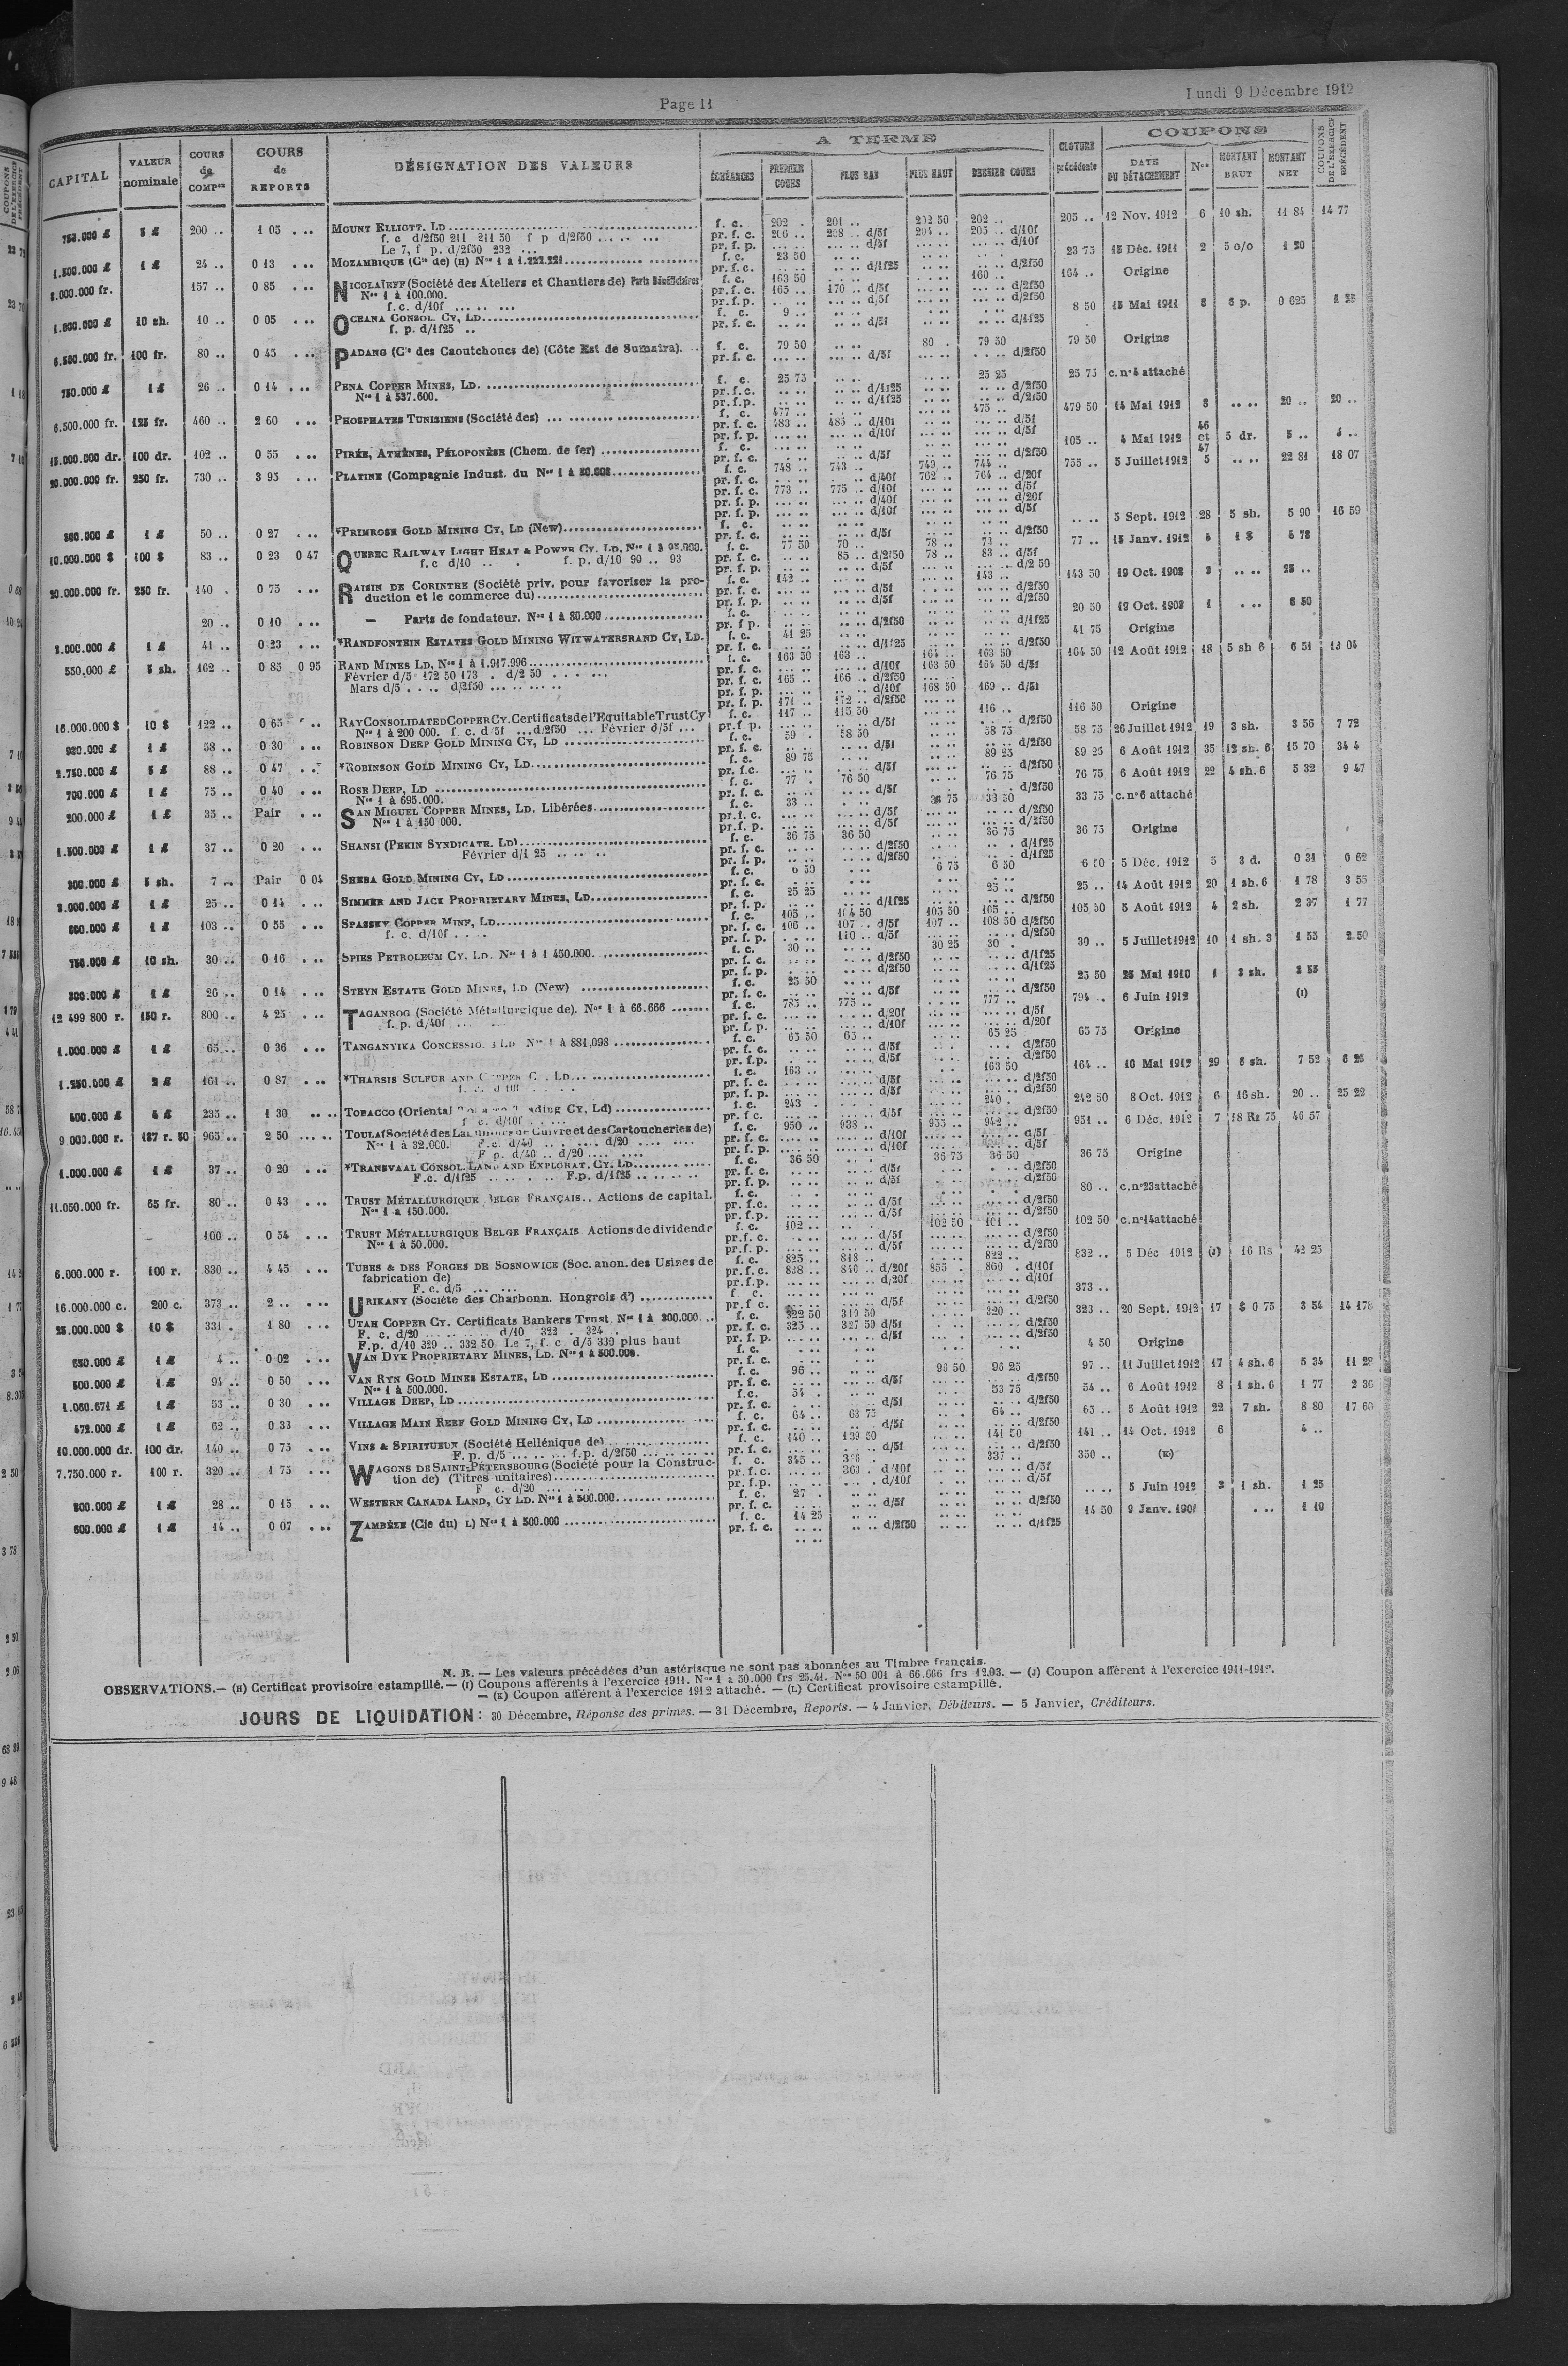 Page 11
Lundi 9 Décembre 1912
CAPITAL
VALEUR nominale
COURS de COMPon
COURS de REPORTS
DÉSIGNATION DES VALEURS
A TERME
ÉCHÉANCES
PREMIER COURS
PLUS BAS
PLUS HAUT
DERNIER COURS
CLOTURE précédente
COUPONS
DATE DU DÉTACHEMENT
Nos
MONTANT BRUT
MONTANT NET
COUPONS DE L'EXERCICE PRÉCÉDENT
750.000 £ 5 £ 200 .. 1 05 . .. MOUNT ELLIOTT. LD f. c. 202 . 201 .. 202 50 202 .. 205 .. 12 Nov. 1912 6 10 sh. 11 84 14 77
f. c d/2f50 211 211 50 f p d/2f50 ... .. ... pr. f. c. 206 .. 208 .. d/5f 204 .. 205 .. d/10f
Le 7, f p. d/2f50 232 ... pr. f. p. d/5f d/10f
1.500.000 £ 1 £ 24 .. 0 13 . .. MOZAMBIQUE (Cie de) (H) Nos 1 à 1.222.221 f. c. 23 50 23 75 15 Déc. 1911 2 5 o/o 1 20
pr. f. c. d/1f25 d/2f50
8.000.000 fr. 157 .. 0 85 . .. NICOLAÏEFF (Société des Ateliers et Chantiers de) Parts Bénéficiaires f. c. 163 50 160 .. 164 .. Origine
Nos 1 à 100.000. pr. f. c. 165 .. 170 .. d/5f d/2f50
f. c. d/10f ... .. ... pr. f. p. d/5f d/2f50
1.500.000 £ 10 sh. 10 .. 0 05 . .. OCEANA CONSOL. CY, LD f. c. 9 .. 8 50 15 Mai 1911 8 6 p. 0 625
f. p. d/1f25 .. pr. f. c. d/5f d/1f25
6.500.000 fr. 100 fr. 80 .. 0 45 . .. PADANG (Cie des Caoutchoucs de) (Côte Est de Sumatra). f. c. 79 50 80 . 79 50 79 50 Origine
pr. f. c. d/5f d/2f50
750.000 £ 1 £ 26 .. 0 14 . .. PENA COPPER MINES, LD. f. c. 25 75 25 25 25 75 c. no 4 attaché
Nos 1 à 537.600. pr. f. c. d/1f25 d/2f50
pr. f. p. d/1f25 d/2f50
6.500.000 fr. 125 fr. 460 .. 2 60 . .. PHOSPHATES TUNISIENS (Société des) f. c. 477 .. 475 .. 479 50 14 Mai 1912 8 .. .. 20 .. 20 ..
pr. f. c. 483 .. 485 .. d/10f d/5f
pr. f. p. d/10f d/5f
15.000.000 dr. 100 dr. 102 .. 0 55 . .. PIRÉE, ATHÈNES, PÉLOPONÈSE (Chem. de fer) f. c. 105 .. 4 Mai 1912 46 et 47 5 dr. 5 .. 5 ..
pr. f. c. d/5f d/2f50
20.000.000 fr. 250 fr. 730 .. 3 95 . .. PLATINE (Compagnie Indust. du Nos 1 à 80.000 f. c. 748 .. 743 .. 749 .. 744 .. 755 .. 5 Juillet 1912 5 .. .. 22 81 18 07
pr. f. c. d/40f 762 .. 764 .. d/20f
pr. f. c. 773 .. 775 .. d/10f d/5f
pr. f. p. d/40f d/20f
pr. f. p. d/10f d/5f
1 £ 50 .. 0 27 . .. *PRIMROSE GOLD MINING CY, LD (New) f. c. .. .. 5 Sept. 1912 28 5 sh. 5 90 16 59
pr. f. c. d/5f d/2f50
10.000.000 $ 100 $ 83 .. 0 23 0 47 QUEBEC RAILWAY LIGHT HEAT & POWER CY. LD, f. c. 77 50 70 .. 78 .. 73 .. 77 .. 15 Janv. 1912 1 $
f. c d/10 .. . f. p. d/10 90 .. 93 pr. f. c. 85 .. d/2f50 78 .. 83 .. d/5f
pr. f. p. d/5f d/2 50
20.000.000 fr. 250 fr. 140 . 0 75 . .. RAISIN DE CORINTHE (Société priv. pour favoriser la pro- f. c. 142 .. 143 .. 143 50 19 Oct. 1908 25 ..
duction et le commerce du) pr. f. c. d/5f d/2f50
pr. f. p. d/5f d/2f50
20 .. 0 10 . .. — Parts de fondateur. Nos 1 à 80.000 f. c. 20 50 19 Oct. 1908 1 6 50
pr. f p. d/2f50 d/1f25
1 £ 41 .. 0 23 . .. *RANDFONTEIN ESTATES GOLD MINING WITWATERSRAND CY, LD. f. c. 41 25 41 75 Origine
pr. f. c. d/1f25 d/2f50
550,000 £ 5 sh. 162 .. 0 85 0 95 RAND MINES LD, Nos 1 à 1.917.996 f. c. 163 50 163 .. 164 .. 163 50 164 50 12 Août 1912 18 5 sh 6 6 51 13 04
Février d/5 172 50 173 . d/2 50 pr. f. c. d/10f 163 50 164 50 d/5f
Mars d/5 . . .. d/2f50 pr. f. c. 165 .. 166 .. d/2f50
pr. f. p. d/10f 168 50 169 .. d/5f
pr. f. p. 171 .. 172 .. d/2f50
16.000.000 $ 10 $ 122 .. 0 65 RAY CONSOLIDATED COPPER CY. Certificats de l'Equitable Trust Cy f. c. 117 .. 115 50 116 .. 116 50 Origine
Nos 1 à 200 000. f. c. d/5f ... d/2f50 ... Février d/5f ... pr. f p. d/5f d/2f50
1 £ 58 .. 0 30 . .. ROBINSON DEEP GOLD MINING CY, LD f. c. 59 . 58 50 58 75 58 75 26 Juillet 1912 19 3 sh. 3 56 7 72
pr. f. c. d/5f d/2f50
2.750.000 £ 5 £ 88 .. 0 47 *ROBINSON GOLD MINING CY, LD f. c. 89 75 89 25 89 25 6 Août 1912 35 12 sh. 6 15 70 34 4
pr. f.c. d/5f d/2f50
700.000 £ 1 £ 75 .. 0 40 . .. ROSE DEEP, LD f. c. 77 . 76 50 76 75 76 75 6 Août 1912 22 4 sh. 6 5 32 9 47
Nos 1 à 695.000. pr. f. c. d/5f d/2f50
200.000 £ 1 £ 35 .. Pair . .. SAN MIGUEL COPPER MINES, LD. Libérées f. c. 33 .. 33 50 33 75 c. no 6 attaché
Nos 1 à 150 000. pr. f. c. d/5f d/2f50
pr. f. p. d/5f d/2f50
1.500.000 £ 1 £ 37 .. 0 20 . .. SHANSI (PEKIN SYNDICATE. LD) f. c. 36 75 36 50 36 75 36 75 Origine
Février d/1 25 .. .. .. pr. f. c. d/2f50 d/1f25
pr. f. p. d/2f50 d/1f25
5 sh. 7 .. Pair 0 04 SHEBA GOLD MINING CY, LD f. c. 6 50 6 75 6 50 6 50 5 Déc. 1912 5 3 d. 0 31 0 62
pr. f. c.
1 £ 25 .. 0 14 . .. SIMMER AND JACK PROPRIETARY MINES, LD f. c. 25 25 25 .. 25 .. 14 Août 1912 20 1 sh. 6 1 78 3 55
pr. f. p. d/1f25 d/2f50
1 £ 103 .. 0 55 . .. SPASSKY COPPER MINE, LD f. c. 105 .. 104 50 105 50 105 .. 105 50 5 Août 1912 4 2 sh. 2 37 1 77
f. c. d/10f . . . pr. f. c. 106 .. 107 .. d/5f 107 .. 108 50 d/2f50
pr. f. p. 110 .. d/5f d/2f50
750.000 £ 10 sh. 30 .. 0 16 . .. SPIES PETROLEUM CY. LD. Nos 1 à 1 450.000. f. c. 30 .. 30 25 30 . 30 .. 5 Juillet 1912 10 1 sh. 3 1 55 2.50
pr. f. c. d/2f50 d/1f25
pr. f. p. d/2f50 d/1f25
1 £ 26 .. 0 14 . .. STEYN ESTATE GOLD MINES, LD (New) f. c. 25 50 25 50 25 Mai 1910 1 3 sh. 3 55
pr. f. c. d/5f d/2f50
12 499 800 r. 150 r. 800 .. 4 25 . .. TAGANROG (Société Métallurgique de). Nos 1 à 66.666 f. c. 785 .. 775 .. 777 .. 794 .. 6 Juin 1912 (I)
f. p. d/40f ... pr. f. c. d/20f d/5f
pr. f. p. d/10f d/20f
1.000.000 £ 1 £ 65 .. 0 36 . .. TANGANYIKA CONCESSIO LD Nos 1 à 881,098 f. c. 65 50 65 .. 65 25 65 75 Origine
pr. f. c. d/5f d/2f50
pr. f.p. d/5f d/2f50
1.250.000 £ 2 £ 161 .. 0 87 . .. *THARSIS SULFUR AND COPPER C . LD f. c. 163 .. 163 50 164 .. 10 Mai 1912 29 6 sh. 7 52 6 25
pr. f. c. d/5f d/2f50
pr. f. p. d/5f d/2f50
4 £ 235 .. 1 30 .. .. TOBACCO (Oriental ading CY, Ld) f. c. 243 . 240 . 242 50 8 Oct. 1912 6 16 sh. 20 .. 25 22
f c. d/10f pr. f c. d/5f d/2f50
9 000.000 r. 187 r. 50 965 .. 2 50 TOULA (Société des Laminoirs de Cuivre et des Cartoucheries de) f. c. 950 .. 933 .. 955 .. 942 .. 951 .. 6 Déc. 1912 7 18 Rs 75 46 57
Nos 1 à 32.000. F.c. d/40 .. . d/20 pr. f. c. d/10f d/5f
F p. d/40 .. d/20 pr. f. p. d/10f d/5f
1.000.000 £ 1 £ 37 .. 0 20 . .. *TRANSVAAL CONSOL. LAND AND EXPLORAT. CY. LD f. c. 36 50 36 75 36 50 36 75 Origine
F.c. d/1f25 F.p. d/1f25 pr. f. c. d/5f d/2f50
pr. f. p. d/5f d/2f50
11.050.000 fr. 65 fr. 80 .. 0 43 . .. TRUST MÉTALLURGIQUE BELGE FRANÇAIS.. Actions de capital. f. c. 80 .. c. no 23 attaché
Nos 1 à 150.000. pr. f.c. d/5f d/2f50
pr. f.p. d/5f d/2f50
100 .. 0 54 . .. TRUST MÉTALLURGIQUE BELGE FRANÇAIS. Actions de dividende f. c. 102 .. 102 50 101 .. 102 50 c. no 14 attaché
Nos 1 à 50.000. pr. f. c. d/5f d/2f50
pr. f. p. d/5f d/2f50
6.000.000 r. 100 r. 830 .. 4 45 . .. TUBES & DES FORGES DE SOSNOWICE (Soc. anon. des Usines de f. c. 825 .. 818 .. 822 .. 832 .. 5 Déc 1912 (J) 16 Rs 42 25
fabrication de) pr. f. c. 838 .. 840 .. d/20f 855 . 860 . d/10f
F. c. d/5 ... ... pr. f.p. d/20f d/10f
16.000.000 c. 200 c. 373 .. 2 .. . .. URIKANY (Société des Charbonn. Hongrois d') f c. 373 ..
pr. f c. d/5f d/2f50
25.000.000 $ 10 $ 331 . 1 80 . .. UTAH COPPER CY. Certificats Bankers Trust. Nos 1 à 300.000. f. c. 322 50 319 50 320 .. 323 .. 20 Sept. 1912 17 $ 0 75 3 54 14 178
F. c. d/20 ... d/10 322 . 324 . pr. f. c. 325 .. 327 50 d/5f d/2f50
F.p. d/10 329 .. 332 50 Le 7, f. c. d/5 330 plus haut pr. f. p. d/5f d/2f50
1 £ 4 .. 0 02 . .. VAN DYK PROPRIETARY MINES, LD. Nos 1 à 500.000. f. c. 4 50 Origine
pr. f. c.
500.000 £ 1 £ 94 .. 0 50 . .. VAN RYN GOLD MINES ESTATE, LD f. c. 96 .. 96 50 96 25 97 .. 11 Juillet 1912 17 4 sh. 6 5 34 11 28
Nos 1 à 500.000. pr. f. c. d/5f d/2f50
1.060.671 £ 1 £ 53 .. 0 30 . .. VILLAGE DEEP, LD f.c. 54 . 53 75 54 .. 6 Août 1912 8 1 sh. 6 1 77 2 36
pr. f. c. d/5f d/2f50
472.000 £ 1 £ 62 .. 0 33 . .. VILLAGE MAIN REEF GOLD MINING CY, LD f. c. 64 .. 63 75 64 .. 65 .. 5 Août 1912 22 7 sh. 8 80 17 60
pr. f. c. d/5f d/2f50
10.000.000 dr. 100 dr. 140 .. 0 75 . .. VINS & SPIRITUEUX (Société Hellénique de) f. c. 140 .. 139 50 141 50 141 .. 14 Oct. 1912 6 4 ..
F. p. d/5 ... f.p. d/2f50 pr. f. c. d/5f d/2f50
7.750.000 r. 100 r. 320 .. 1 75 . .. WAGONS DE SAINT-PÉTERSBOURG (Société pour la Construc- f. c. 345 .. 336 . 337 .. 350 .. (K)
tion de) (Titres unitaires) pr. f.c. 363 . d/10f d/5f
F c. d/20 ... pr. f.p. d/10f d/5f
1 £ 28 .. 0 15 . .. WESTERN CANADA LAND, CY LD. Nos 1 à 500.000 f. c. 27 . .. .. 5 Juin 1912 3 1 sh. 1 25
pr. f. c. d/5f d/2f50
600.000 £ 1 £ 14 .. 0 07 . .. ZAMBÈZE (Cie du) L) Nos 1 à 500.000 f. c. 14 25 14 50 9 Janv. 190 1 10
pr. f. c. d/2f50 d/1f25
N. B. — Les valeurs précédées d'un astérisque ne sont pas abonnées au Timbre français.
OBSERVATIONS.— (H) Certificat provisoire estampillé.— (I) Coupons afférents à l'exercice 1911. Nos 1 à 50.000 frs 25.41. Nos 50 001 à 66.666 frs 12.03. — (J) Coupon afférent à l'exercice 1911-1912.
— (K) Coupon afférent à l'exercice 1912 attaché. — (L) Certificat provisoire estampillé.
JOURS DE LIQUIDATION : 30 Décembre, Réponse des primes. — 31 Décembre, Reports. — 4 Janvier, Débiteurs. — 5 Janvier, Créditeurs.